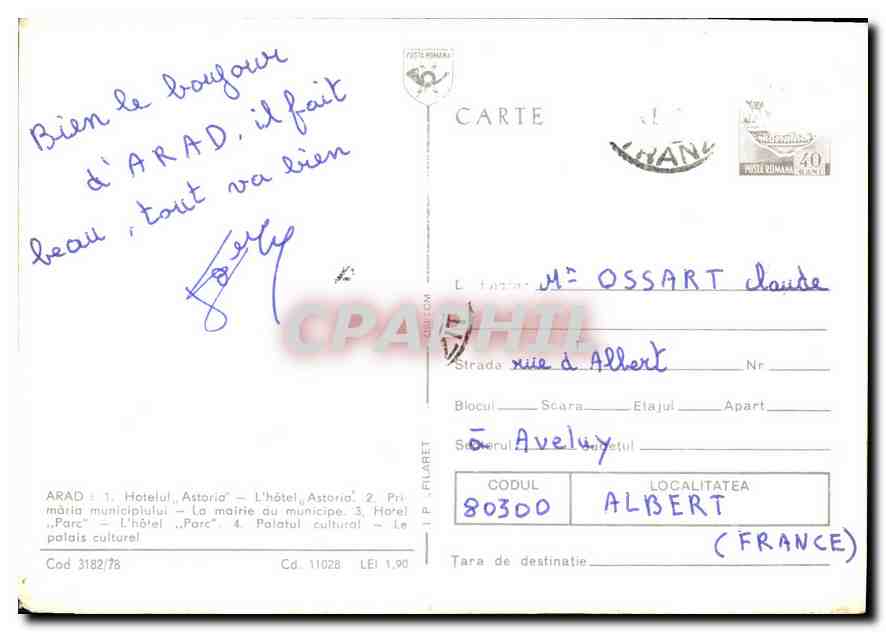 Bien le boujour
d'ARAD, il fait
beau, tout va bien
POSTA ROMANA
CARTE
POSTA ROMANA 40 BANI
Mr OSSART Claude
CPAPHIL
Strada rue d'Albert Nr
Blocul Scara Etajul Apart
à Aveluy
CODUL LOCALITATEA
80300 ALBERT
(FRANCE)
Tara de destinatie
I P „FILARET
ARAD : 1. Hotelul „Astoria" — L'hôtel „Astoria". 2. Pri-
măria municipiului — La mairie du municipe. 3. Hotel
„Parc" — L'hôtel „Parc". 4. Palatul cultural — Le
palais culturel
Cod 3182/78 Cd. 11028 LEI 1,90